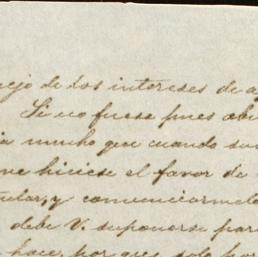 ejo de los intereses de a
Si no fuese pues abu
ia mucho que cuando su
me hiciese el favor de
tular, y comunicarmelo
debe V. suponerse par
hace, por que solo por